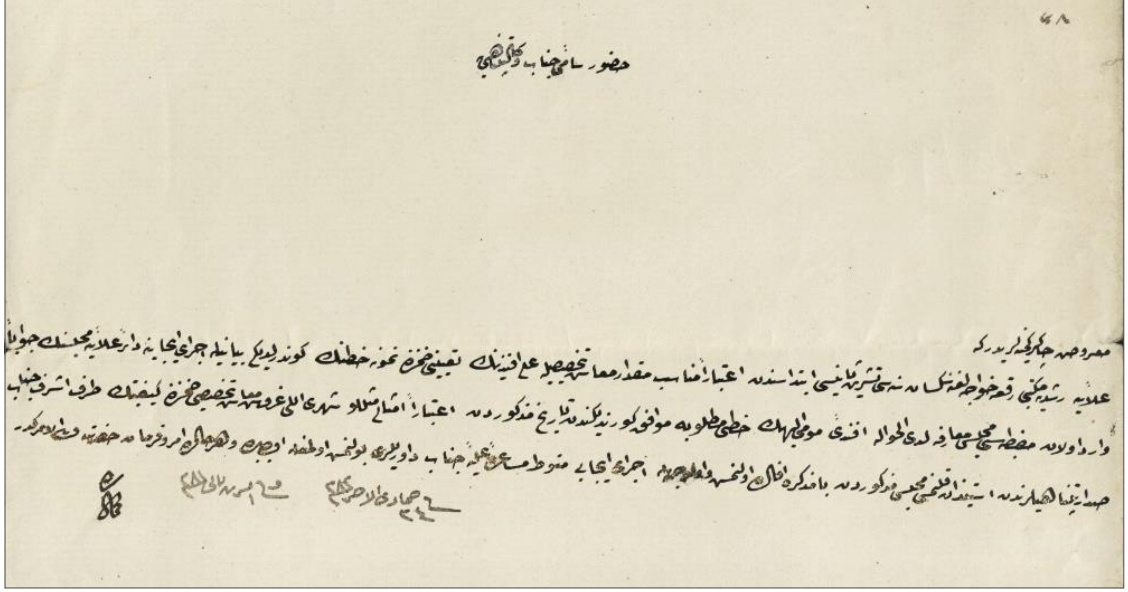 ٤٨
حضور سامئ جناب وكالتپناهی
معروض چاكر كمينه‌لريدر كه
علائيه رشديه مكتبی رقعه خواجه‌لغنه سكسان سنه‌سی تشرين ثانيسی ابتداسندن اعتباراً مناسب مقدار معاش تخصيصيله علی افندينك تعيينی ضمننده نمونه خطنك كوندرلديكی بيانيله اجرای ايجابنه دائر علائيه مجلسنك جواباً
وارد اولان مضبطه‌سی مجلس معارفه لدی الحواله افندئ مومی اليهك خطی مطلوبه موافق كورنديكندن تاريخ مذكوردن اعتباراً امثالی مثللو شهری اللی غروش معاش تخصيصی ضمننده كيفيتك طرف اشرف جناب
صدارتپناهيلرندن استيذان قلنمسی مجلس مذكوردن با مذكره افاده اولنمش واولوجهله اجرای ايجابی منوط مساعدۀ عليۀ جناب داوريلری بولنمش اولمغله اولبابده وهر حالده امر وفرمان حضرت ولی الامركدر
جمادی الاخر
تشرين ثانی